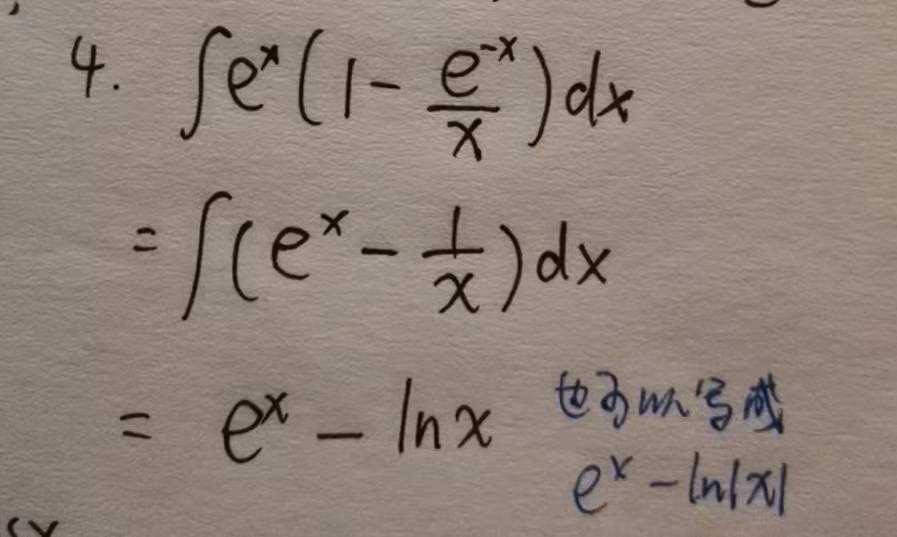 4. ∫e^x(1 - e^{-x}/x)dx
= ∫(e^x - 1/x)dx
= e^x - ln x 也可以写成
e^x - ln|x|